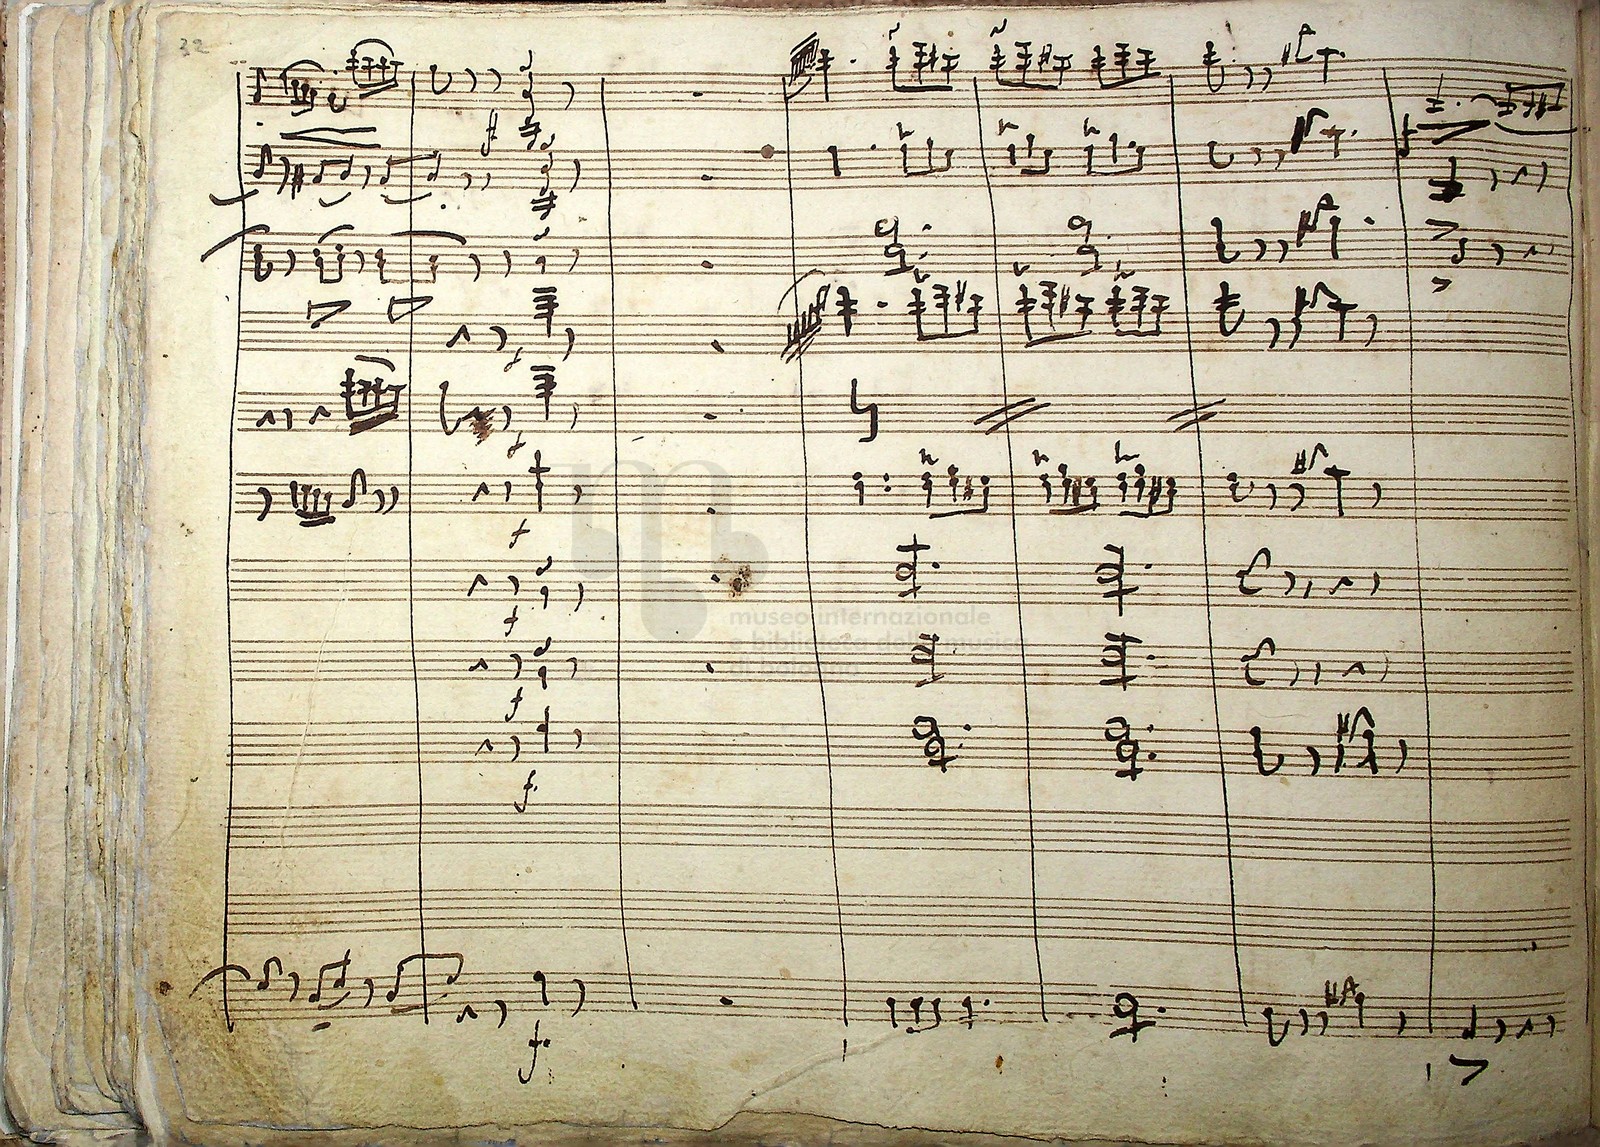 32
f
f
f
f
f
f
f
museo internazionale
e biblioteca della musica
di bologna
f
f